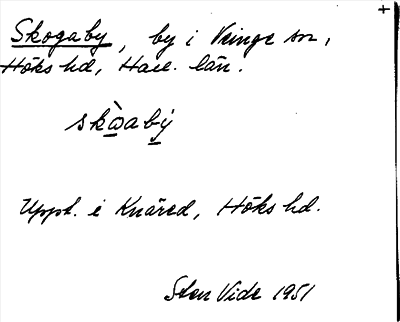 +
Skogaby, by i Veinge sn,
Höks hd, Hall. län.
skòaby
Uppt. i Knäred, Höks hd.
Sten Vide 1951